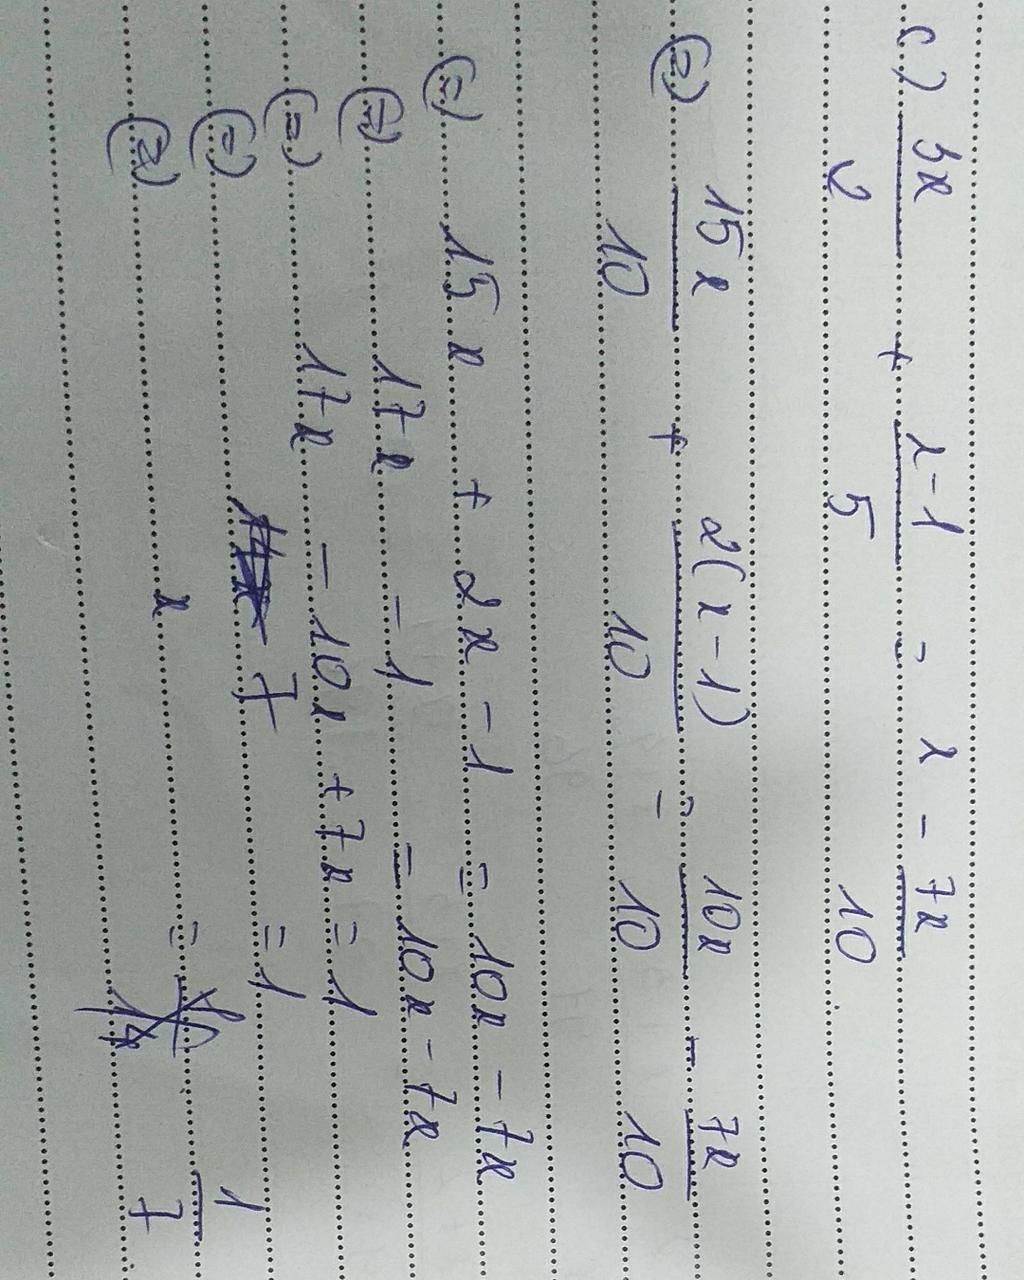 c.) 3x/2 + x-1/5 = x - 7x/10
(=) 15x/10 + 2(x-1)/10 = 10x/10 - 7x/10
(=) 15x + 2x - 1 = 10x - 7x
(=) 17x - 1 = 10x - 7x
(=) 17x - 10x + 7x = 1
(=) 7 = 1
(=) x = 1/7